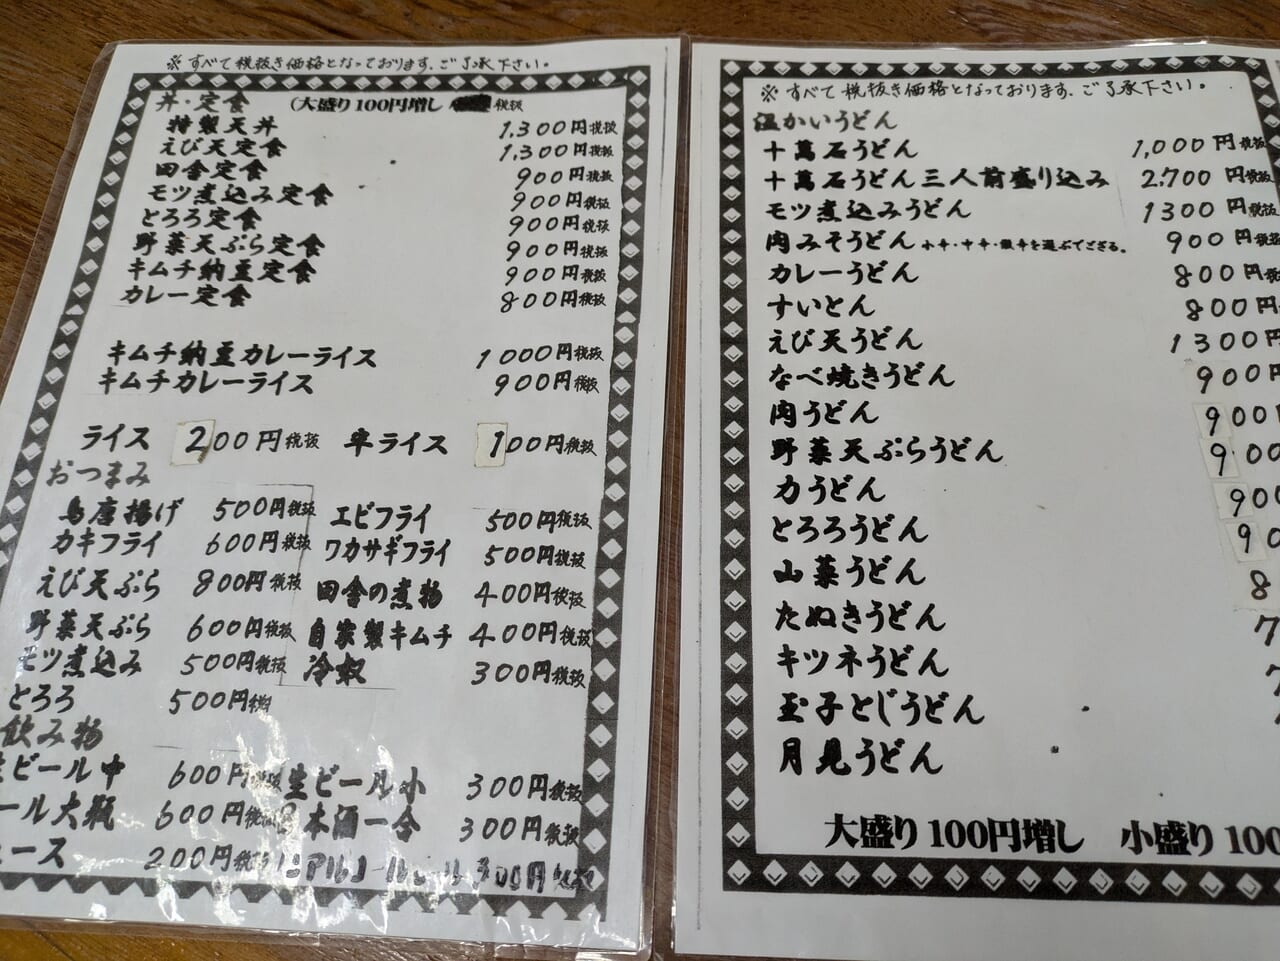 ※すべて税抜き価格となっております、ご了承下さい。
丼・定食 (大盛り100円増し 税抜
特製天丼 1,300円税抜
えび天定食 1,300円税抜
田舎定食 900円税抜
モツ煮込み定食 900円税抜
とろろ定食 900円税抜
野菜天ぷら定食 900円税抜
キムチ納豆定食 900円税抜
カレー定食 800円税抜
キムチ納豆カレーライス 1000円税抜
キムチカレーライス 900円税抜
ライス 200円税抜 半ライス 100円税抜
おつまみ
鳥唐揚げ 500円税抜 エビフライ 500円税抜
カキフライ 600円税抜 ワカサギフライ 500円税抜
えび天ぷら 800円税抜 田舎の煮物 400円税抜
野菜天ぷら 600円税抜 自家製キムチ 400円税抜
モツ煮込み 500円税抜 冷奴 300円税抜
とろろ 500円税
飲み物
生ビール中 600円税抜 生ビール小 300円税抜
ール大瓶 600円税抜 本酒一合 300円税抜
ース 200円税抜 ノンアルコールビール 300円税抜
※すべて税抜き価格となっております、ご了承下さい。
温かいうどん
十萬石うどん 1,000円税抜
十萬石うどん三人前盛り込み 2,700円税抜
モツ煮込みうどん 1300円税抜
肉みそうどん 小辛・中辛・激辛を選ぶでござる。 900円税抜
カレーうどん 800円税
すいとん 800円
えび天うどん 1300円
なべ焼きうどん 900円
肉うどん 900
野菜天ぷらうどん 900
力うどん 900
とろろうどん 90
山菜うどん 8
たぬきうどん 7
キツネうどん 7
玉子とじうどん
月見うどん
大盛り100円増し 小盛り100